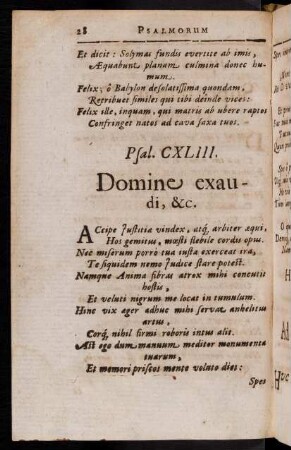 28 PSALMORUM
Et dicit: Solymac fundis evertite ab imis,
Æquabunt planum culmina donec hu-
mum.
Felix, ô Babylon desolatissima quondam,
Retribuet similes qui tibi deinde vices:
Felix ille, inquam, qui matris ab ubere raptos
Confringet natos ad cava saxa tuos.
Psal. CXLIII.
Domine exau-
di, &c.
ACcipe Justitia vindex, atq; arbiter æqui,
Hos gemitus, mœsti flebile cordis opus.
Nec miserum porrò tua justa exerceat ira,
Te siquidem nemo Judice stare potest.
Namque Anima fibras atrox mihi concutit
hostis,
Et veluti nigrum me locat in tumulum.
Hinc vix æger adhuc mihi servat anhelitus
artus,
Corq; nihil firmi roboris intus alit.
Ast ego dum manuum meditor monumenta
tuarum,
Et memori priscos mente voluto dies:
Spes